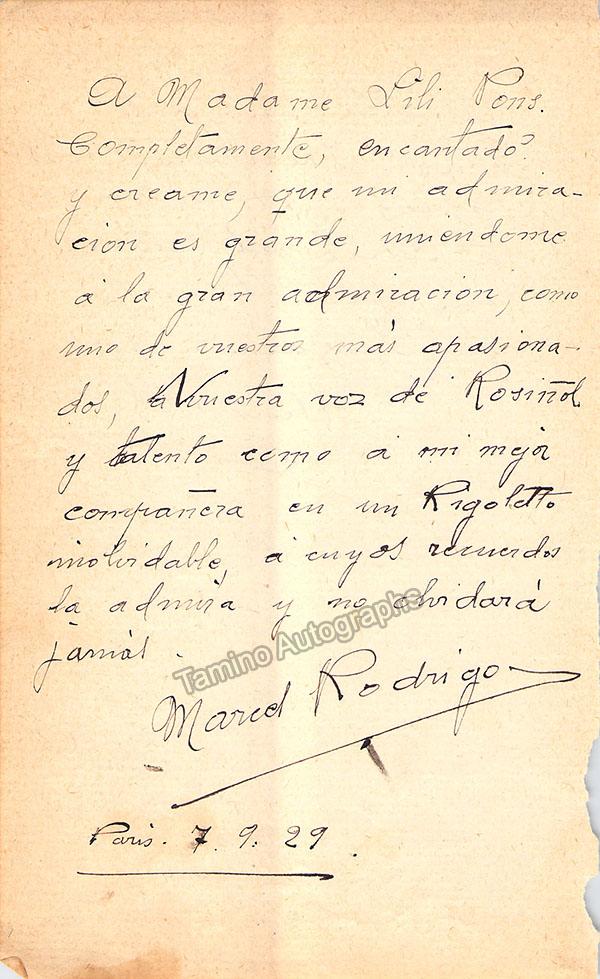 A Madame Lili Pons.
Completamente, encantado
y creame, que mi admira-
cion es grande, uniendome
á la gran admiracion, como
uno de vuestros más apasiona-
dos, a Vuestra voz de Rosiñol
y talento como á mi mejor
compañera en un Rigoletto
inolvidable, á cuyos recuerdos
la admira y no olvidará
jamás.
Tamino Autographs
Marcel Rodrigo
Paris. 7. 9. 29.